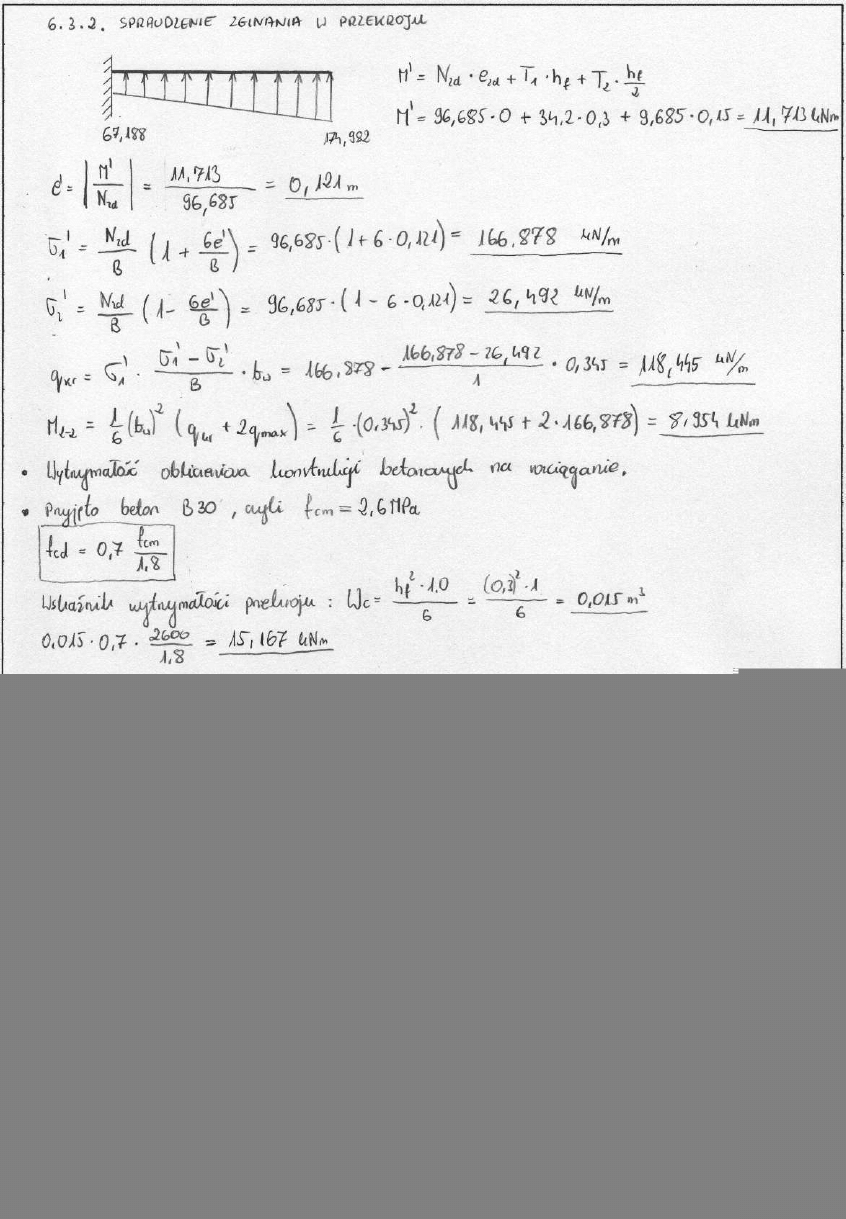 6.3.2. SPRAWDZENIE ZGINANIA W PRZEKROJU
67,188
174,982
M' = N₂d · e₂d + T₁ · hf + T₂ · hf/2
M' = 96,685·0 + 34,2·0,3 + 9,685·0,15 = 11,713 kNm
e' = |M'/N₂d| = 11,713/96,685 = 0,121 m
σ₁' = N₂d/B (1 + 6e'/B) = 96,685·(1 + 6·0,121) = 166,878 kN/m
σ₂' = N₂d/B (1 - 6e'/B) = 96,685·(1 - 6·0,121) = 26,492 kN/m
qkr = σ₁' · (σ₁' - σ₂')/B · bw = 166,878 - (166,878 - 26,492)/1 · 0,345 = 118,445 kN/m
M₂₋₂ = 1/6 (bw)² (qkr + 2qmax) = 1/6 ·(0,345)² · (118,445 + 2·166,878) = 8,954 kNm
• Wytrzymałość obliczeniowa konstrukcji betonowych na rozciąganie.
• Przyjęto beton B30, czyli fcm = 2,6 MPa
fcd = 0,7 fcm/1.8
Wskaźnik wytrzymałości przekroju : Wc = hf²·1.0/6 = (0,3)²·1/6 = 0,015 m³
0,015 · 0,7 · 2600/1.8 = 15,167 kNm